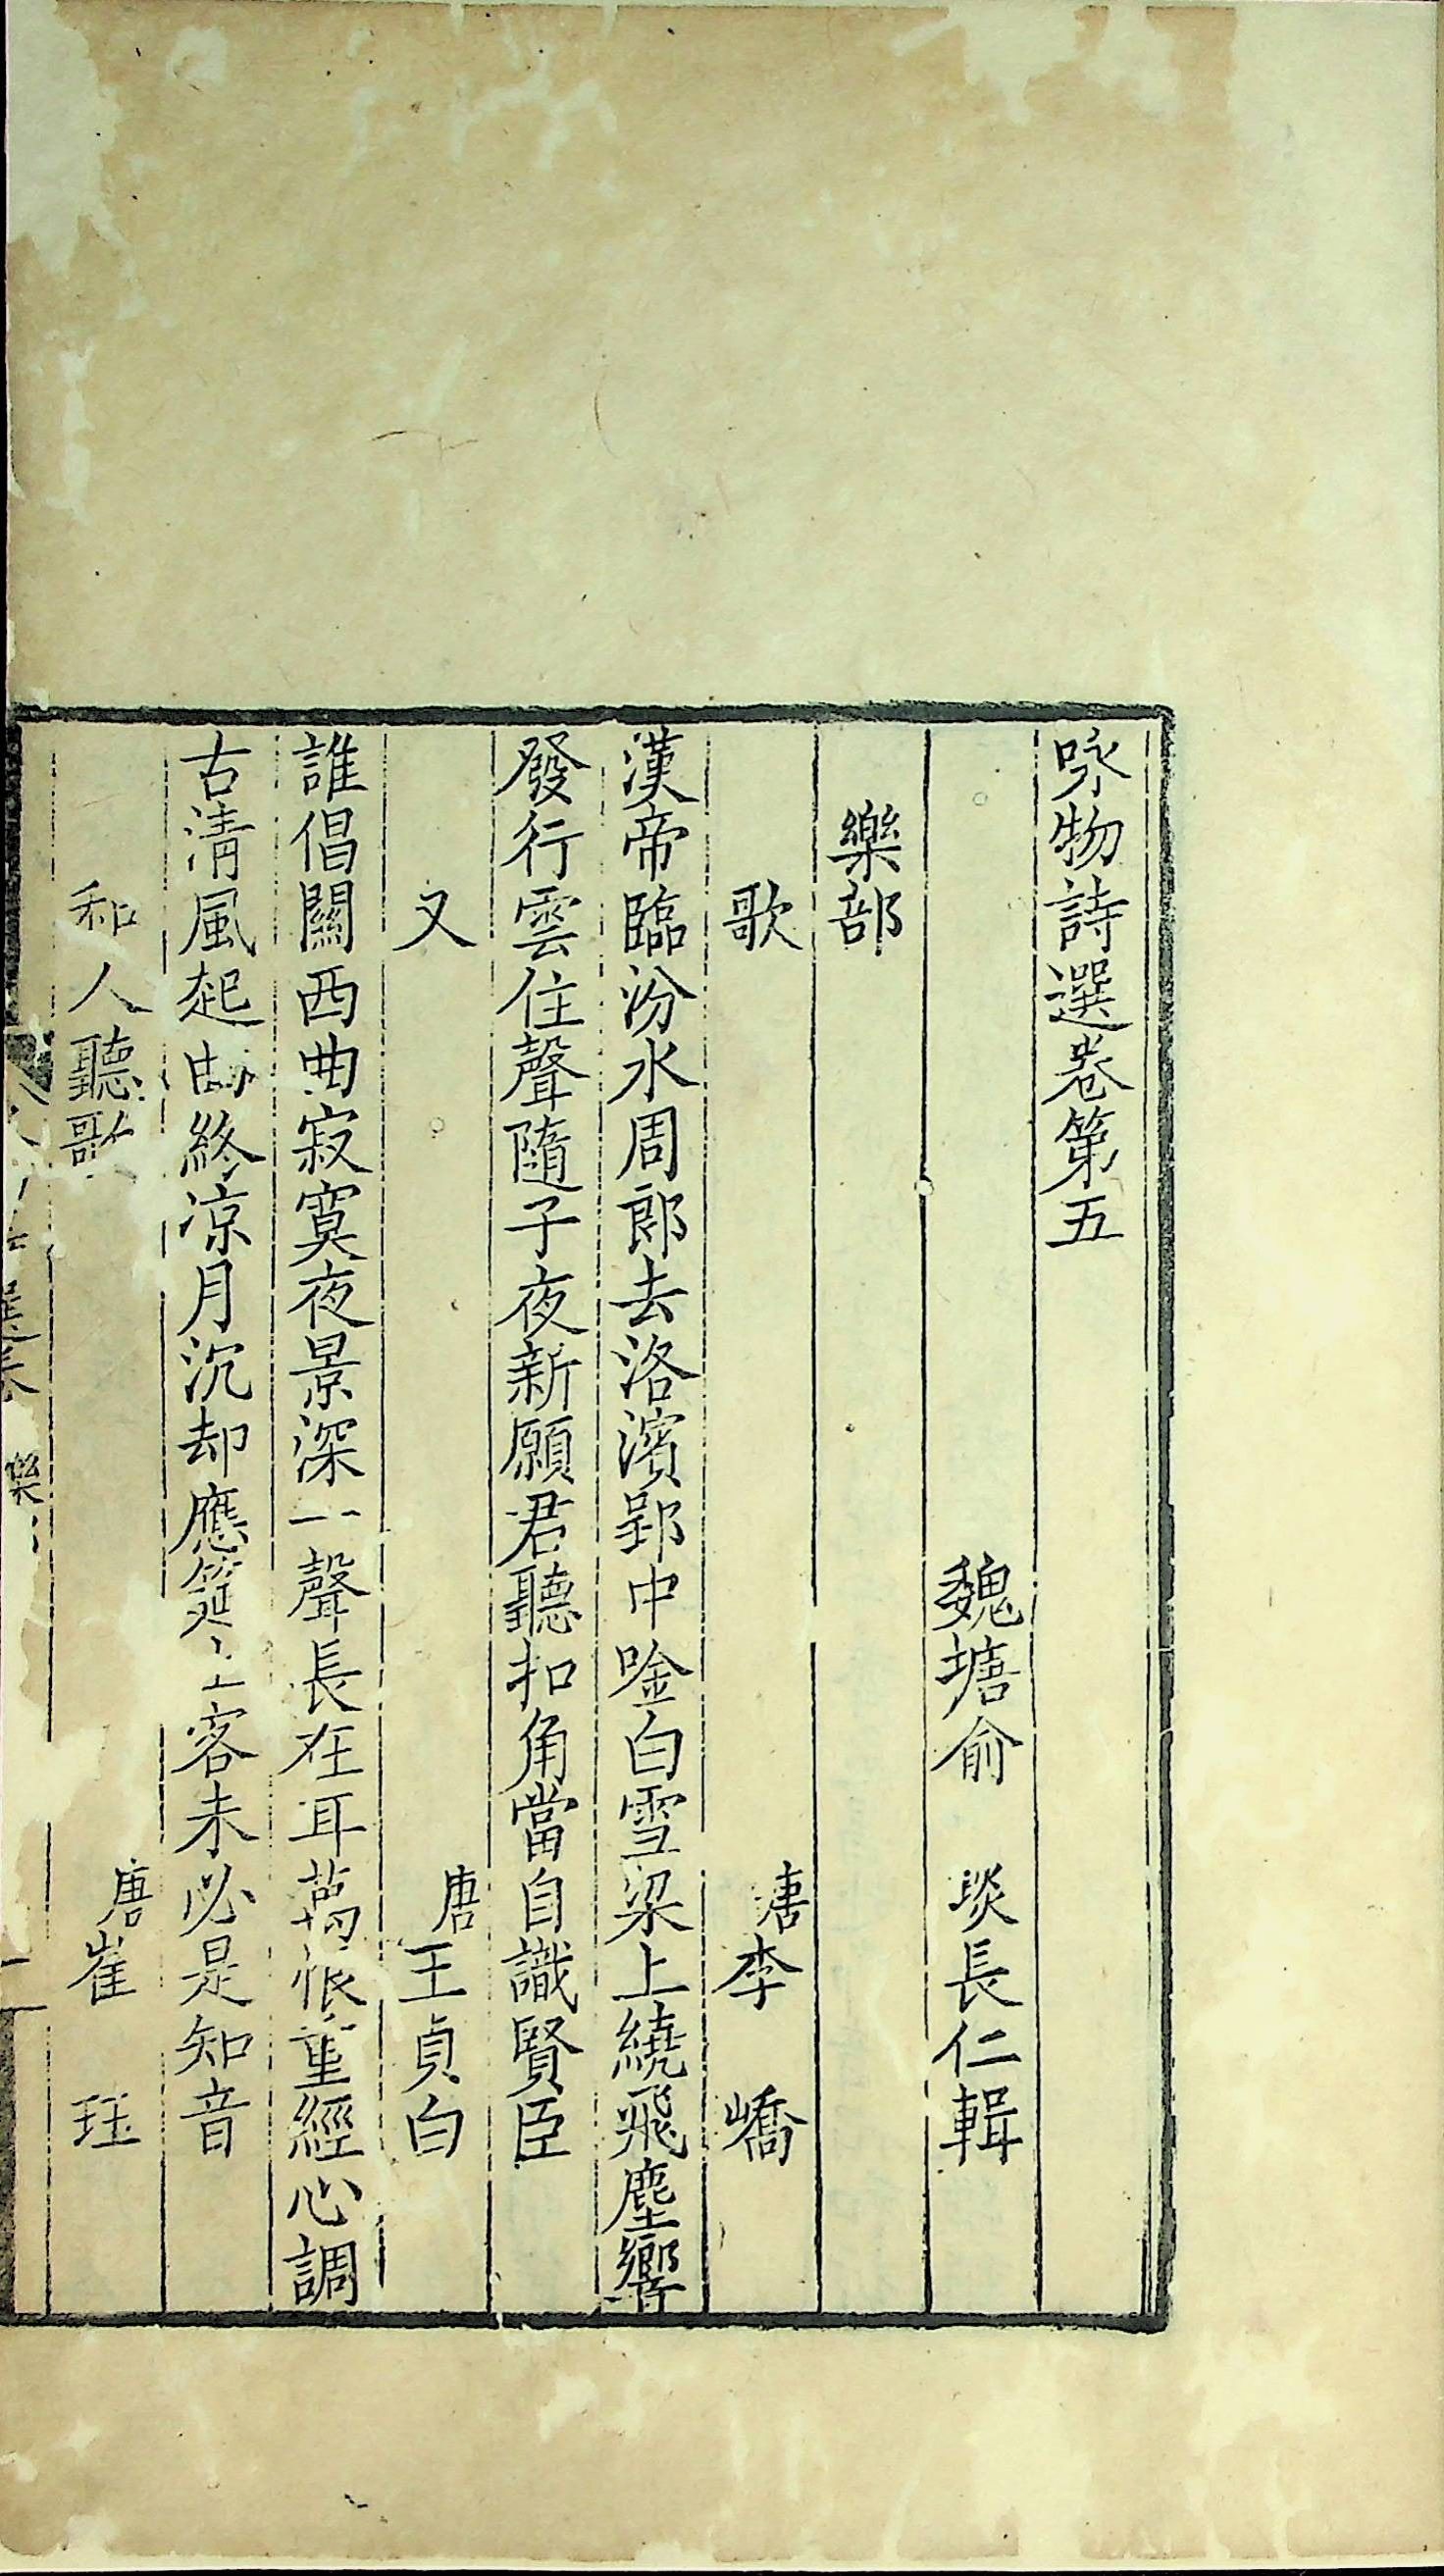 咏物詩選卷第五
魏塘俞 琰長仁輯
樂部
歌 唐李 嶠
漢帝臨汾水周郎去洛濱郢中唫白雪梁上繞飛塵響
發行雲住聲隨子夜新願君聽扣角當自識賢臣
又 唐王貞白
誰倡關西曲寂寞夜景深一聲長在耳萬恨重經心調
古清風起曲終凉月沉却應筵上客未必是知音
和人聽歌 唐崔 珏
選卷 樂